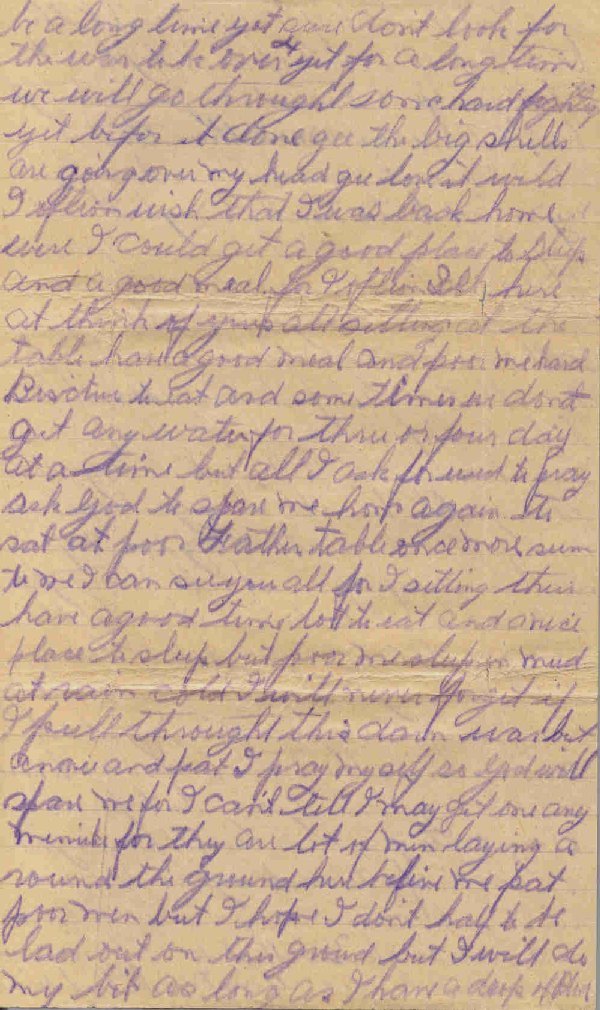 be a long time yet gure dont look for
the war to be over yet for a long time
we will go throught some hard fighting
yet befor it done gee the big shells
are going over my head gee boys it wild
I oftion wish that I was back home
were I could get a good place to sleep
and a good meal for I oftion sit here
at think of yous all sitting at the
table have a good meal and poor me hard
Bisctue to eat and some times we dont
get any water for three or four day
at a time but all I ask for used to pray
ask God to spare me home again to
sat at poor Father table once more seem
to me I can see you all for I sitting their
have a good time lot to eat and a nice
place to sleep but poor me sleep in mud
at rain cold I will never forget if
I pull throught this darn war but
Annie and pat I pray my self so God will
spare me for I can't tell I may get one any
menute for they are lot of men laying a
round the ground here before me pat
poor men but I hope I dont hay to be
lad out on this groud but I will do
my bit as long as I have a drop of Blud